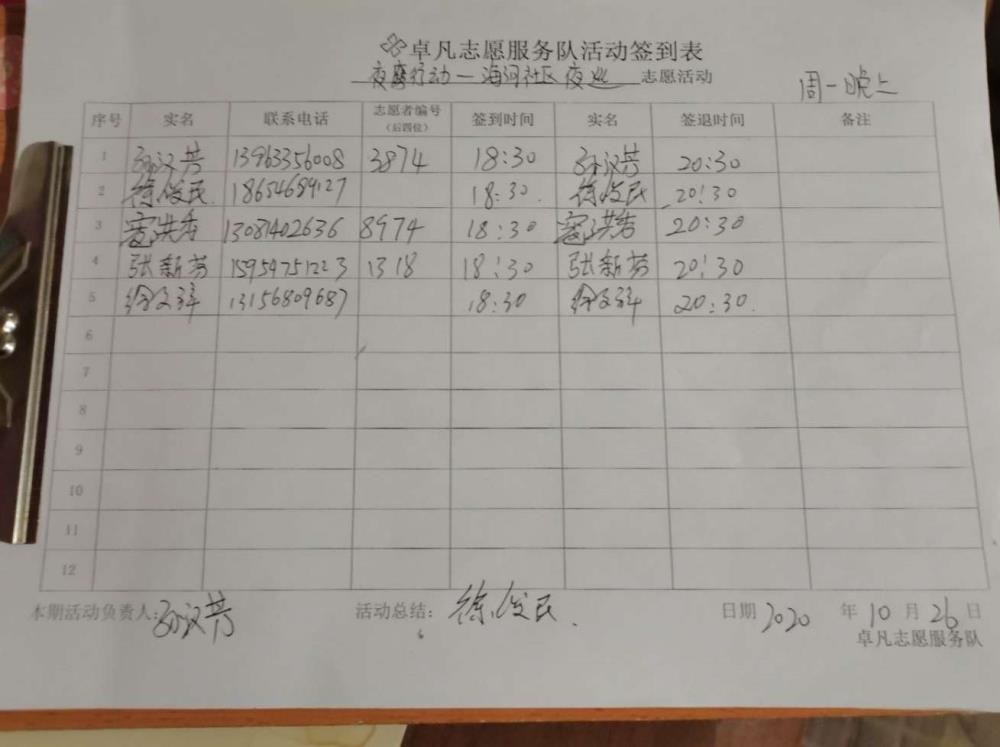 卓凡志愿服务队活动签到表
夜鹰行动一海河社区夜巡 志愿活动
周一晚上
序号 实名 联系电话 志愿者编号（后四位） 签到时间 实名 签退时间 备注
1 孙汉芳 13963356008 3874 18:30 孙汉芳 20:30
2 徐俊民 18654689127 18:30 徐俊民 20:30
3 洪香 13081402636 8974 18:30 洪香 20:30
4 张新芳 15954751223 1318 18:30 张新芳 20:30
5 徐文 13156809687 18:30 徐文 20:30
6
7
8
9
10
11
12
本期活动负责人：孙汉芳 活动总结：徐俊民 日期 2020 年 10 月 26 日
卓凡志愿服务队